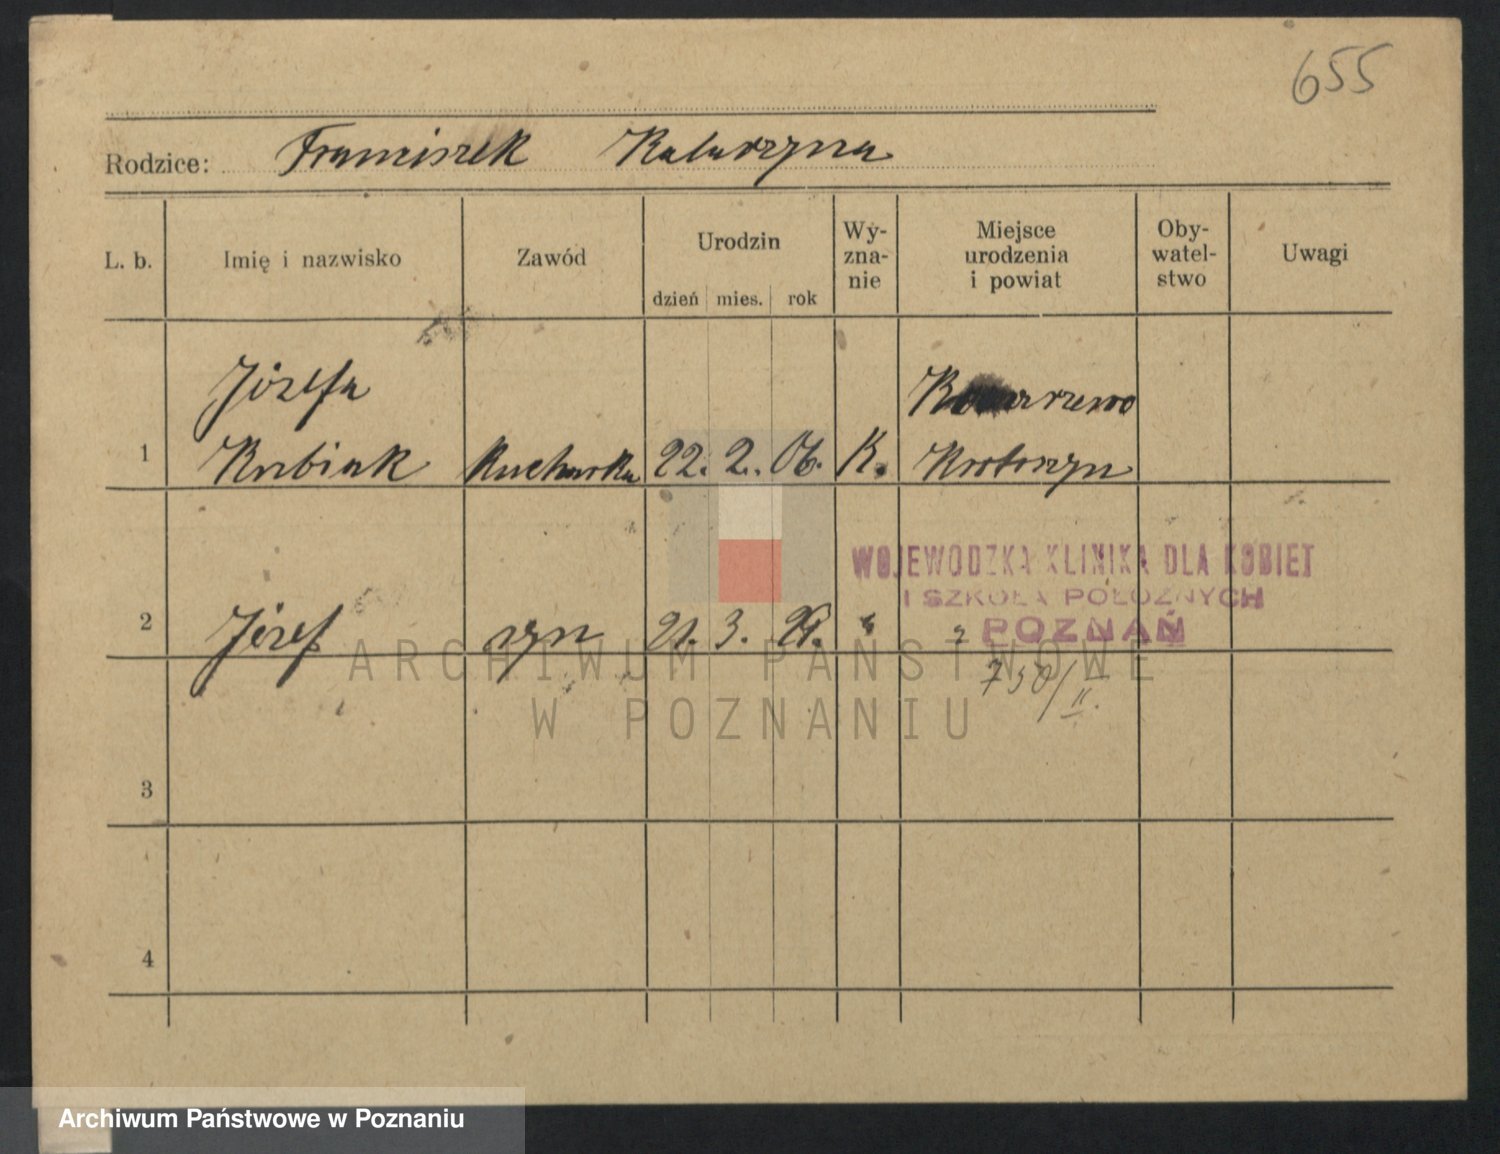 655
Rodzice: Franciszek Katarzyna
L. b. Imię i nazwisko Zawód Urodzin dzień mies. rok Wy-zna-nie Miejsce urodzenia i powiat Oby-watel-stwo Uwagi
Józefa
1 Kubiak Kucharka 22. 2. 06. K. Krotoszyn
WOJEWODZKA KLINIKA DLA KOBIET
I SZKOŁA POŁOŻNYCH
POZNAŃ
2 Józef syn 21. 3.
730/II.
ARCHIWUM PAŃSTWOWE
W POZNANIU
3
4
Archiwum Państwowe w Poznaniu